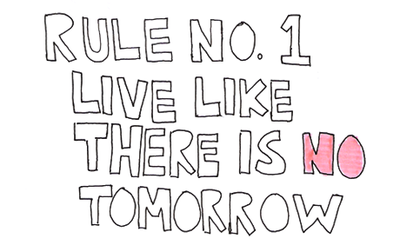 RULE NO. 1
LIVE LIKE
THERE IS NO
TOMORROW